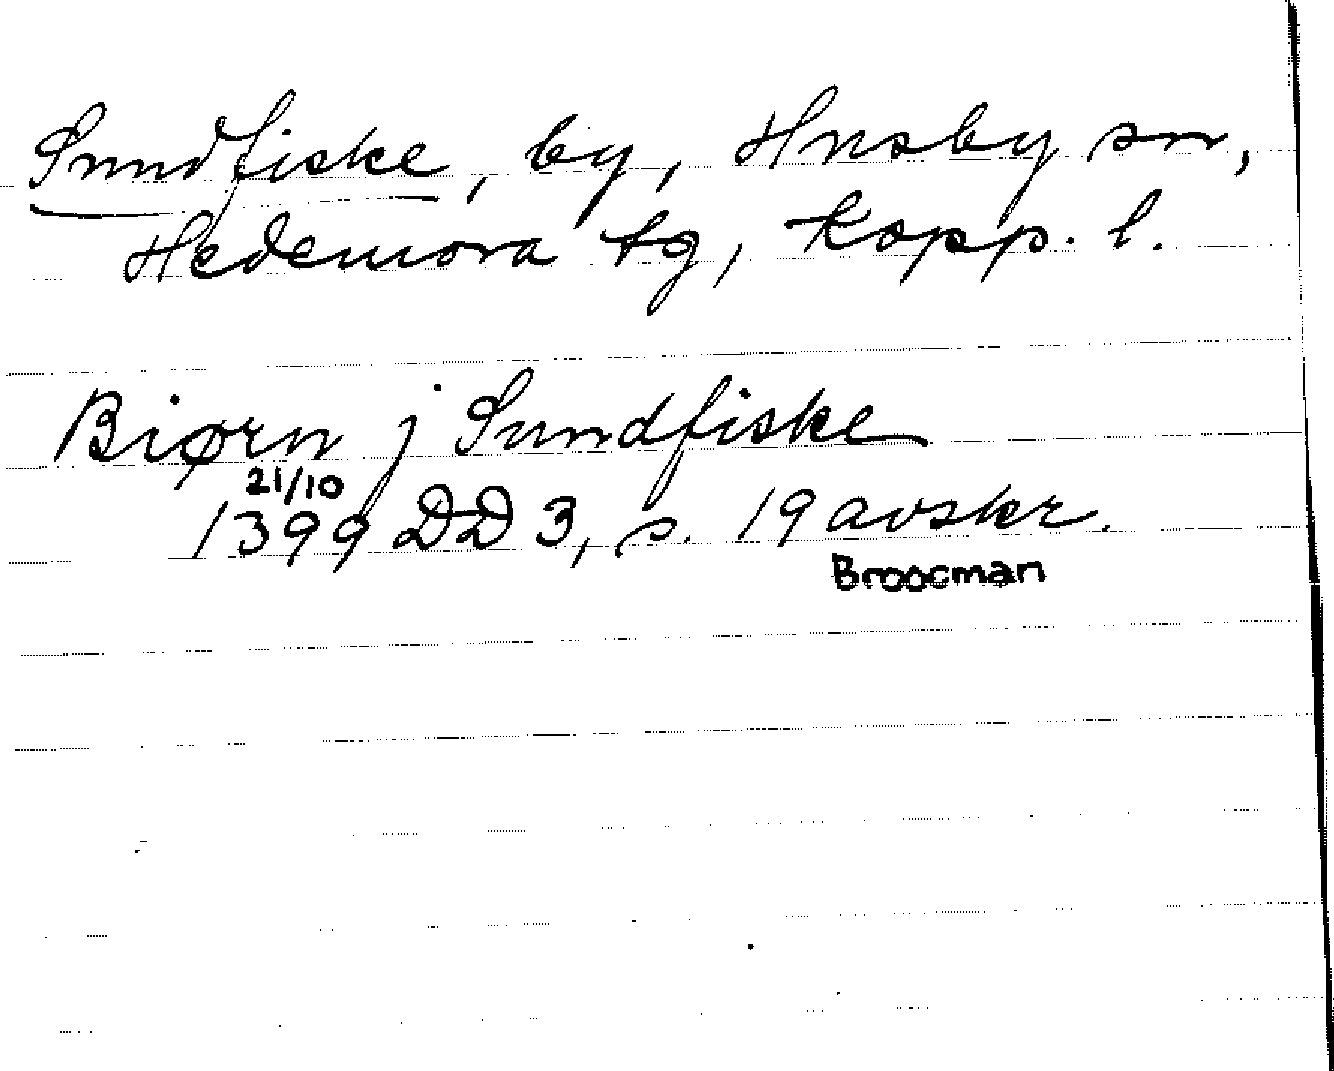 Sundfiske, by, Husby sn,
Hedemora tg, Kopp. l.
Biørn j Sundfiske
21/10
1399 DD 3, s. 19 avskr.
Broocman